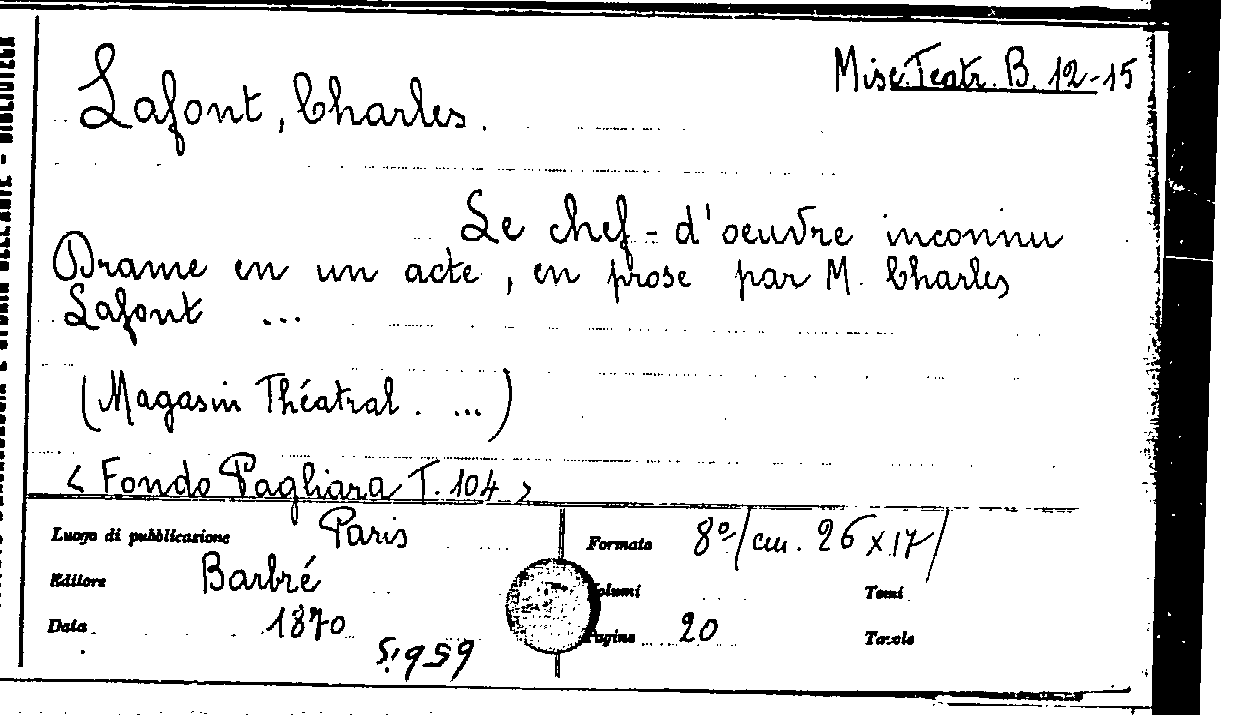 Lafont, Charles.
Misc. Teatr. B. 12-15
Le chef-d'oeuvre inconnu
Drame en un acte, en prose par M. Charles
Lafont ...
(Magasin Théatral. ...)
< Fondo Pagliara T. 104 >
Luogo di pubblicazione Paris
Formato 8º/cm. 26 x 17/
Editore Barbré
Volumi
Tomi
Data 1870
Pagine 20
Tavole
51959